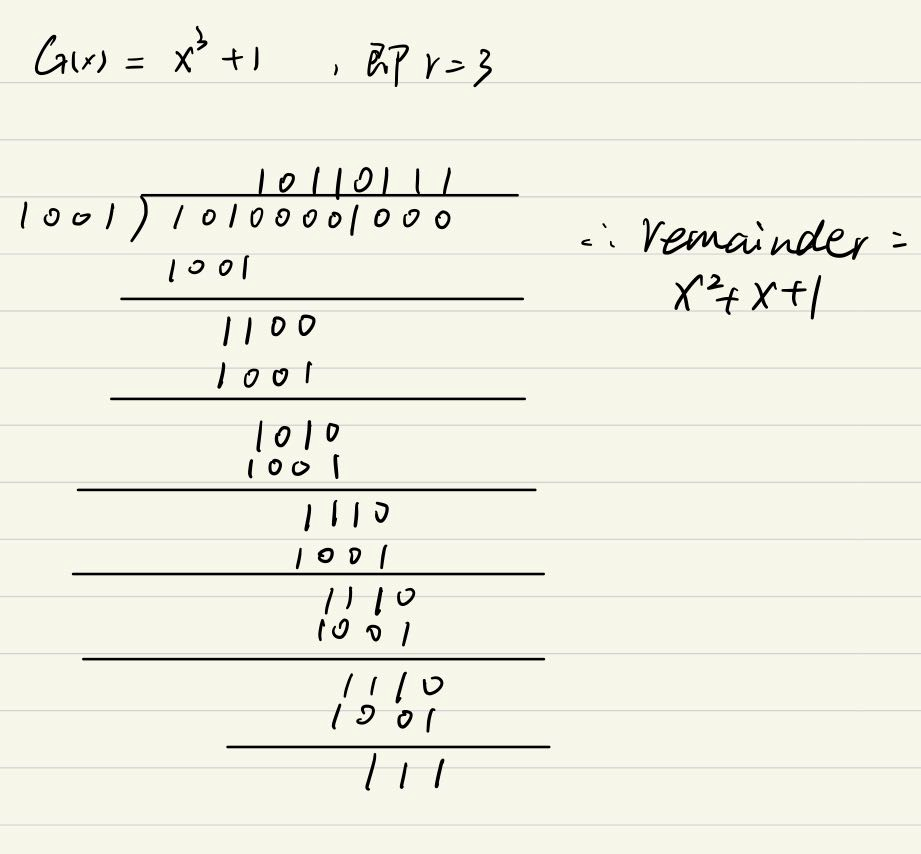 G(x) = x³ + 1 , 即 r = 3
10110111
1001 ) 10100001000
1001
1100
1001
1010
1001
1110
1001
1110
1001
1110
1001
111
∴ remainder =
x² + x + 1